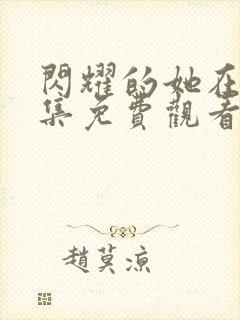 閃耀的她在
集免費觀看
趙莫涼